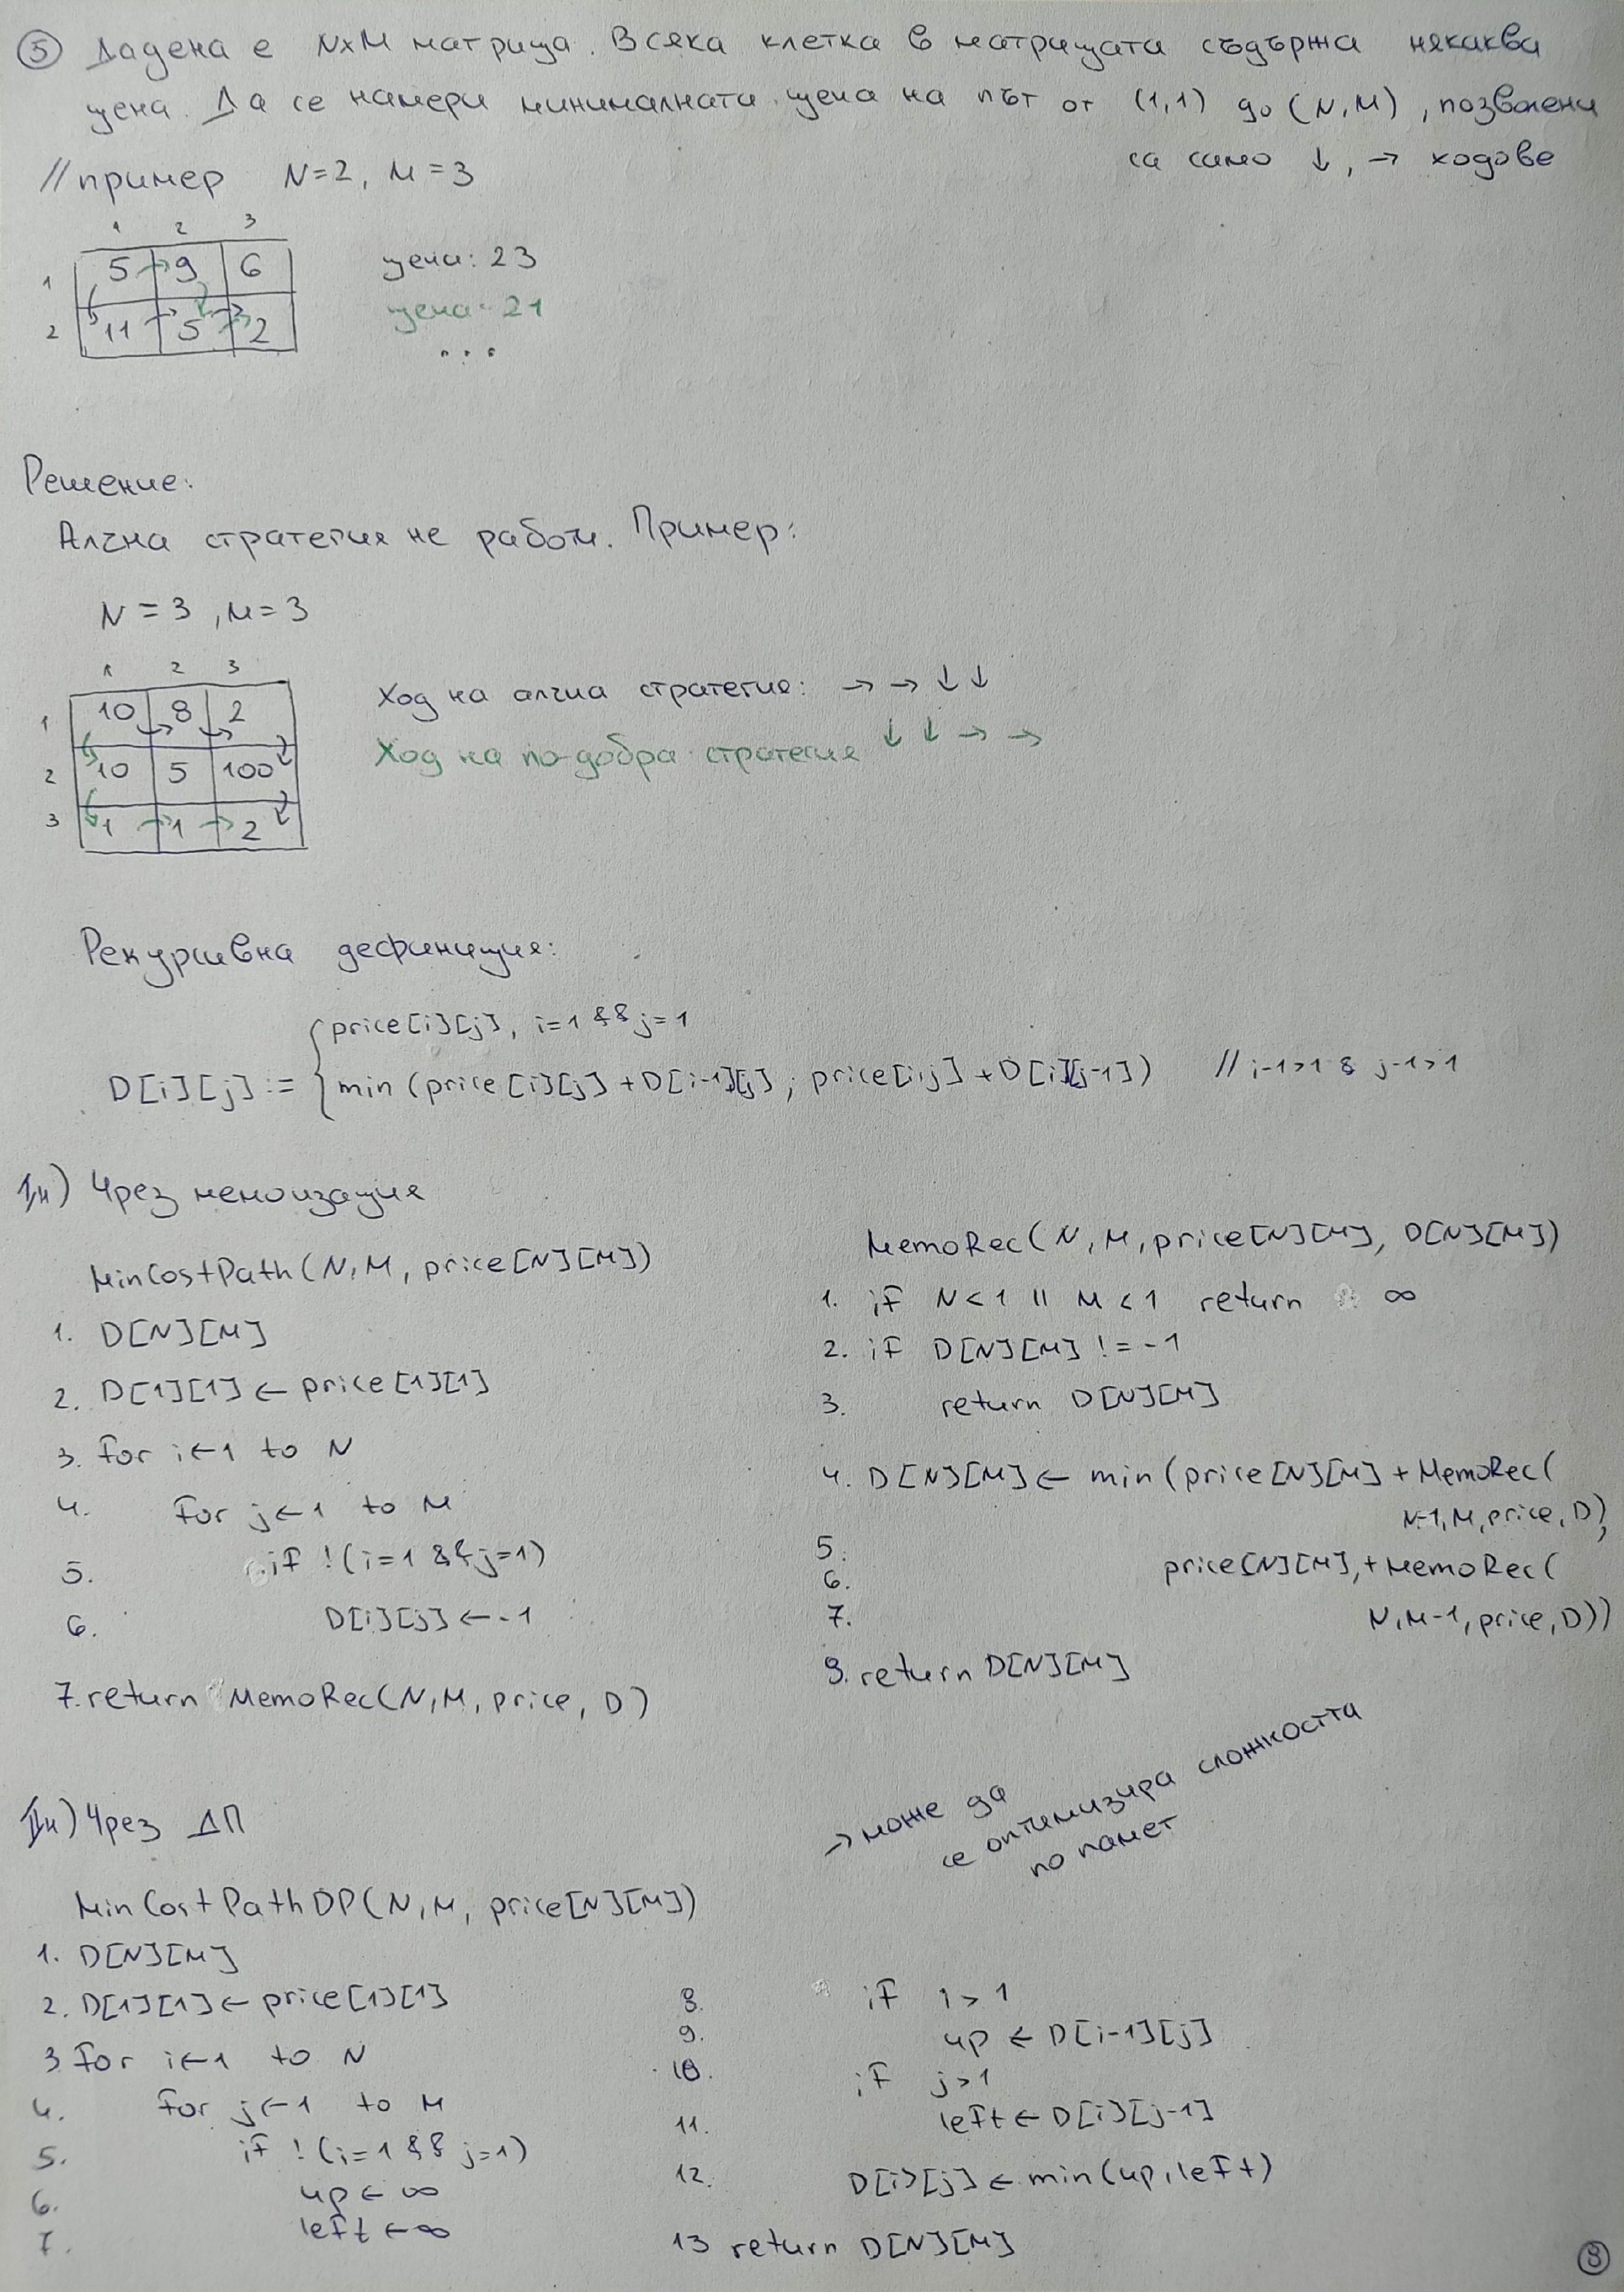 ⑤ Дадена е NxM матрица. Всяка клетка в матрицата съдържа някаква
цена. Да се намери минималната цена на път от (1,1) до (N,M), позволени
са само ↓, → ходове
// пример N=2, M=3
1 2 3
1 5 9 6
2 11 5 2
цена: 23
цена: 21
...
Решение:
Алчна стратегия не работи. Пример:
N = 3, M = 3
1 2 3
1 10 8 2
2 10 5 100
3 1 1 2
Ход на алчна стратегия: → → ↓ ↓
Ход на по-добра стратегия ↓ ↓ → →
Рекурсивна дефиниция:
price[i][j], i=1 && j=1
D[i][j] := { min (price[i][j] + D[i-1][j] ; price[i,j] + D[i][j-1]) // i-1>1 & j-1>1
I н) Чрез мемоизация
MinCostPath(N, M, price[N][M])
1. D[N][M]
2. D[1][1] ← price[1][1]
3. for i←1 to N
4. for j←1 to M
5. if !(i=1 && j=1)
6. D[i][j] ← -1
7. return MemoRec(N, M, price, D)
MemoRec(N, M, price[N][M], D[N][M])
1. if N<1 || M<1 return ∞
2. if D[N][M] != -1
3. return D[N][M]
4. D[N][M] ← min (price[N][M] + MemoRec(
N-1, M, price, D),
5.
6. price[N][M], + MemoRec(
7. N, M-1, price, D))
8. return D[N][M]
→ може да
се оптимизира сложността
по памет
II н) Чрез ДП
MinCostPathDP(N, M, price[N][M])
1. D[N][M]
2. D[1][1] ← price[1][1]
3 for i←1 to N
4. for j←1 to M
5. if !(i=1 && j=1)
6. up ← ∞
7. left ← ∞
8. if i > 1
9. up ← D[i-1][j]
10. if j>1
11. left ← D[i][j-1]
12. D[i][j] ← min(up, left)
13 return D[N][M]
⑧